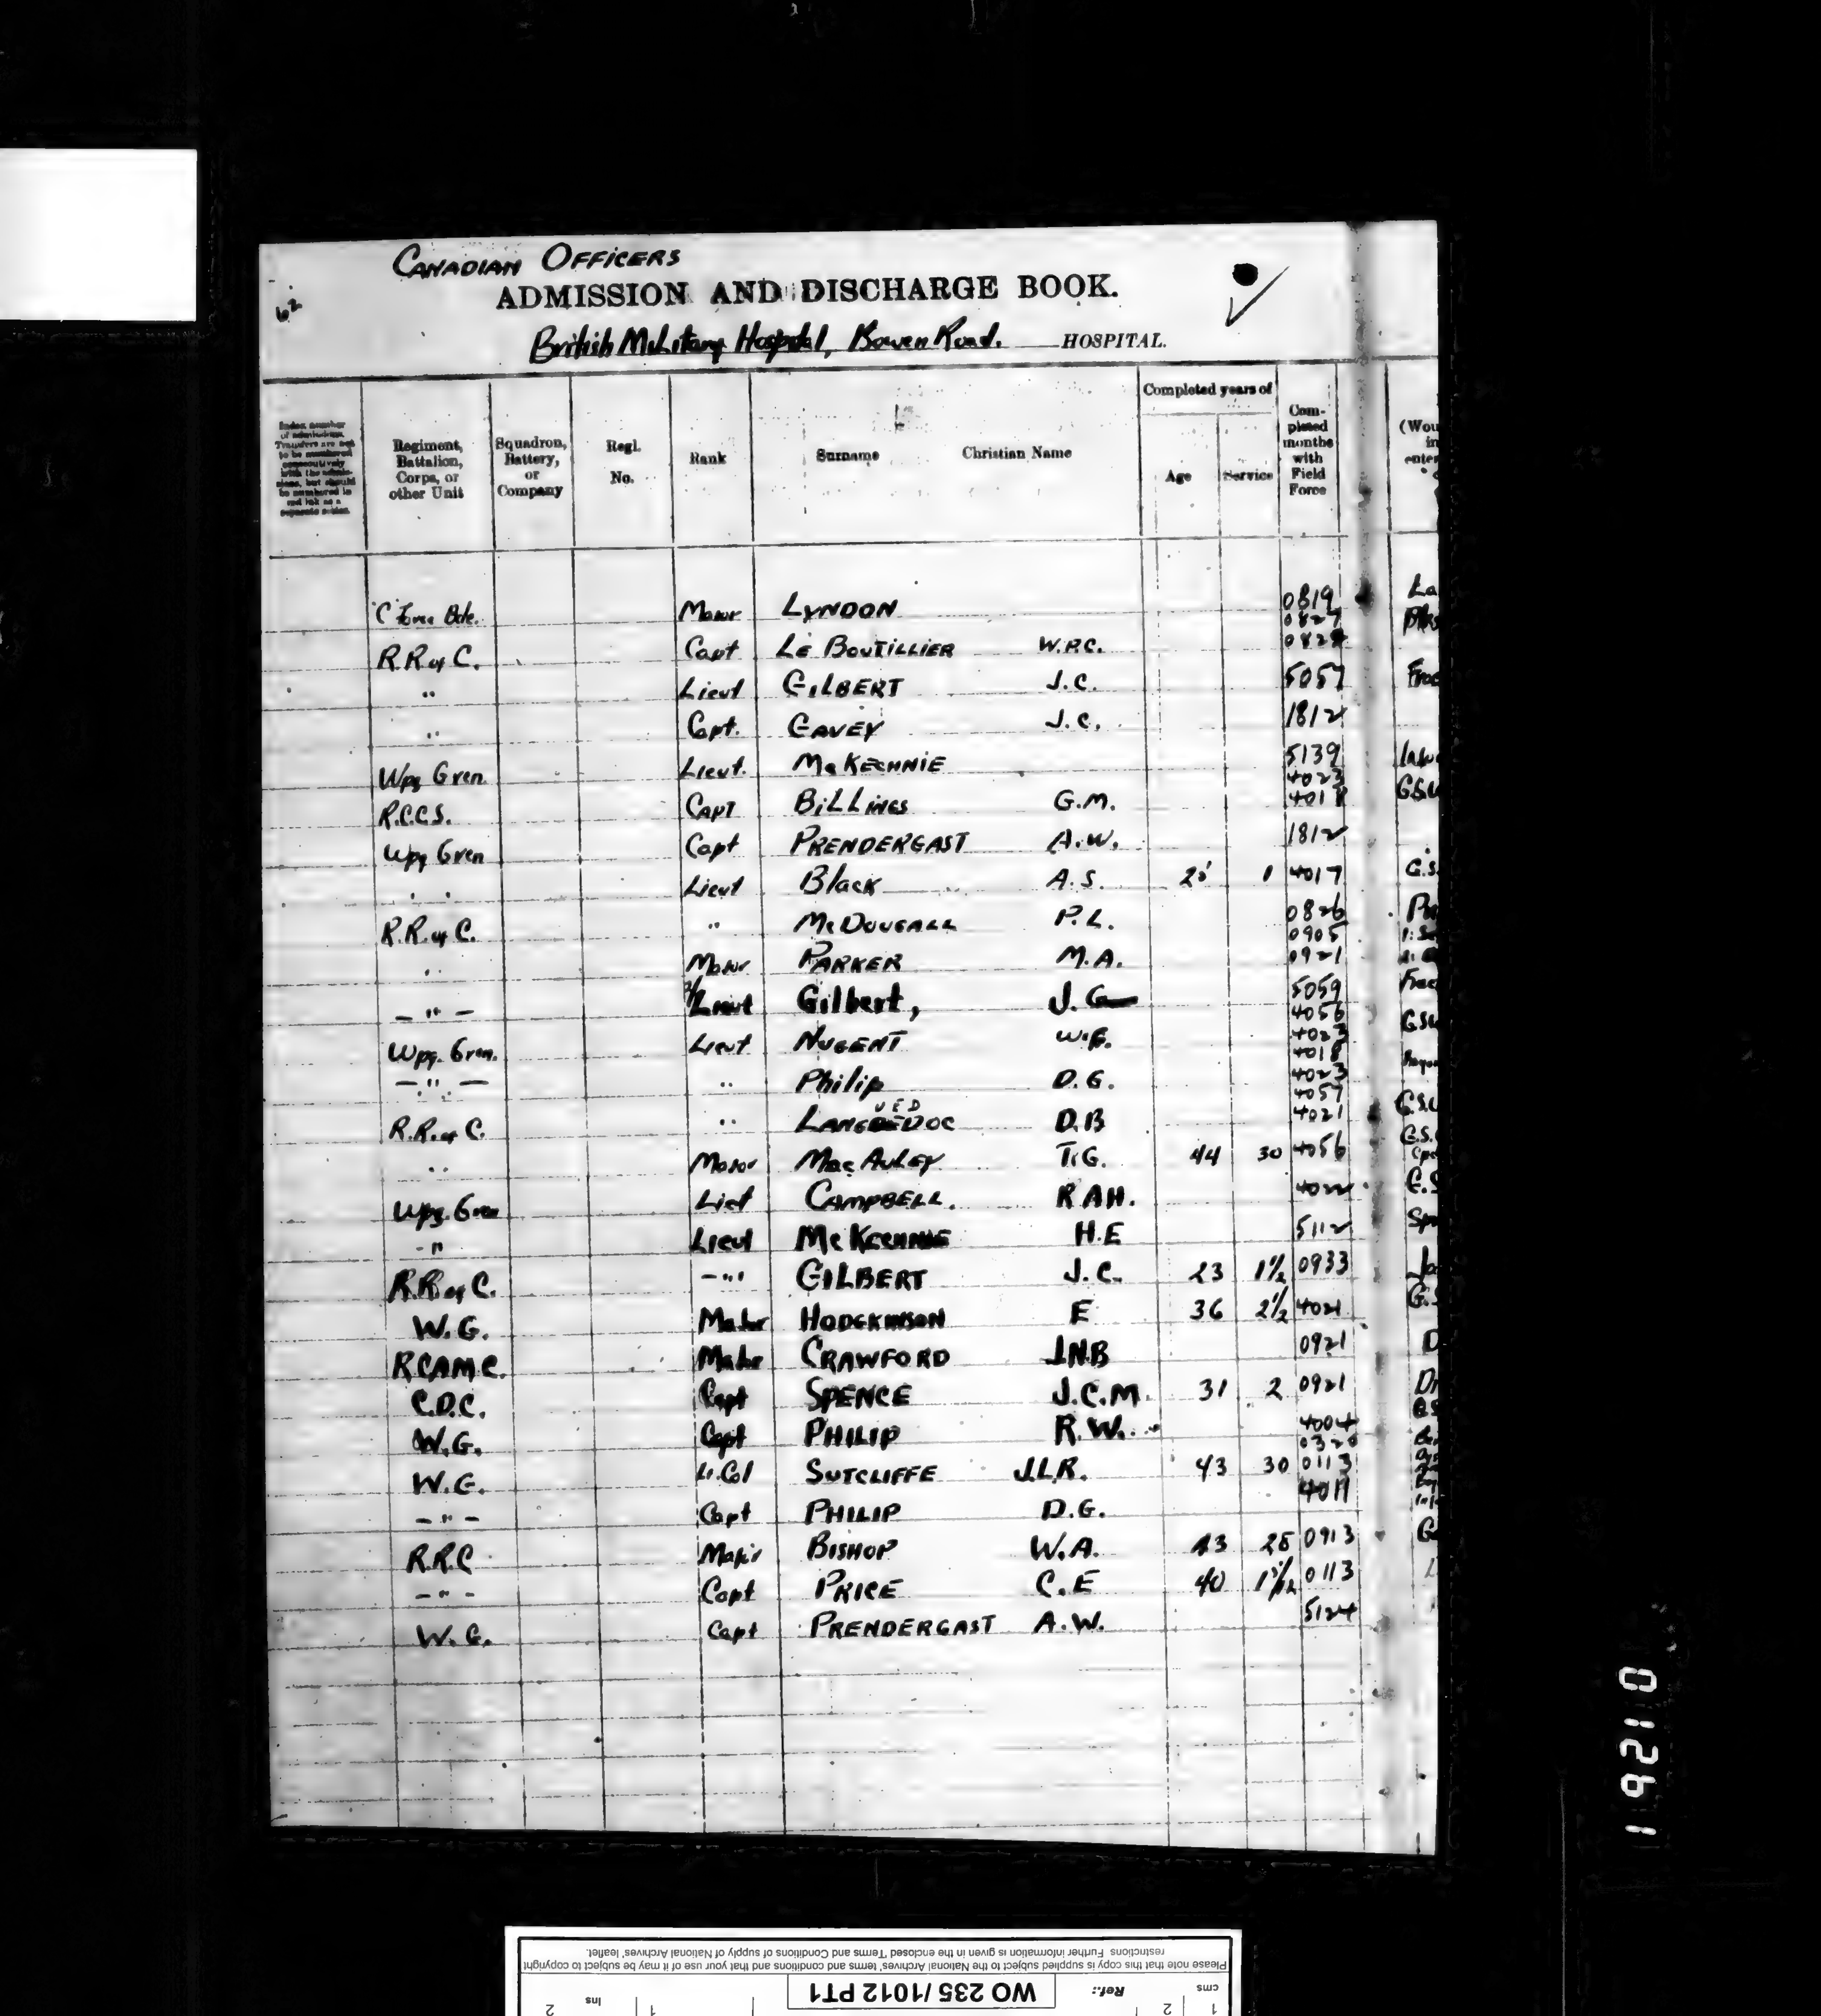 CANADIAN OFFICERS
62
ADMISSION AND DISCHARGE BOOK.
British Military Hospital, Bowen Road. HOSPITAL.
Index number of admissions. Transfers are not to be numbered consecutively with the admissions, but should be numbered in red ink as a separate series.
Regiment, Battalion, Corps, or other Unit
Squadron, Battery, or Company
Regl. No.
Rank
Surname
Christian Name
Completed years of
Age
Service
Completed months with Field Force
(Wou
in
enter
"C" Force Bde. Major LYNDON 0819 La
0827
R.R. of C. Capt LE BOUTILLIER W.P.C. 0828
" Lieut GILBERT J.C. 5057 Frac
" Capt. GAVEY J.C. 1812
Wpg Gren Lieut. McKECHNIE 5139
4023
R.C.C.S. Capt BILLINGS G.M. 4018 GSW
Wpg Gren Capt PRENDERGAST A.W. 1812
" " Lieut Black A.S. 1 4017 G.S.
R.R. of C. " McDOUGALL P.L. 0826
0905
" Major PARKER M.A. 0921
— " — 2/Lieut Gilbert, J. 5059 Frac
4056
Wpg. Gren. Lieut NUGENT 4023 GSW
4018
— " — " Philip D.G. 4023
4057
R.R. of C. " LANGUEDOC D.B 4021 G.S.
" Major MacAuley T.G. 44 30 4056 G.S.
Wpg. Gren Liet CAMPBELL. R AH. 4022 G.S
- " Lieut McKechnie H.E 5112 Spr
R.R. of C. - " - GILBERT J.C. 23 1½ 0933 Ja
W.G. Major HODGKINSON E 36 2½ 4021 G.S
R.C.A.M.C. Major CRAWFORD J.N.B 0921 D
C.D.C. Capt SPENCE J.C.M. 31 2 0921 Di
W.G. Capt PHILIP R.W. 4004
0320
W.G. Lt. Col SUTCLIFFE J.L.R. 43 30 0113
— " — Capt PHILIP D.G. 4011
R.R.C Major BISHOP W.A. 43 28 0913
— " — Capt PRICE C.E 40 0113
W.G. Capt PRENDERGAST A.W. 5124
19210
Please note that this copy is supplied subject to the National Archives' terms and conditions and that your use of it may be subject to copyright
restrictions. Further information is given in the enclosed 'Terms and Conditions of supply of National Archives' leaflet.
cms 1 2 Ref.: WO 235/1012 PT1 1 ins 2